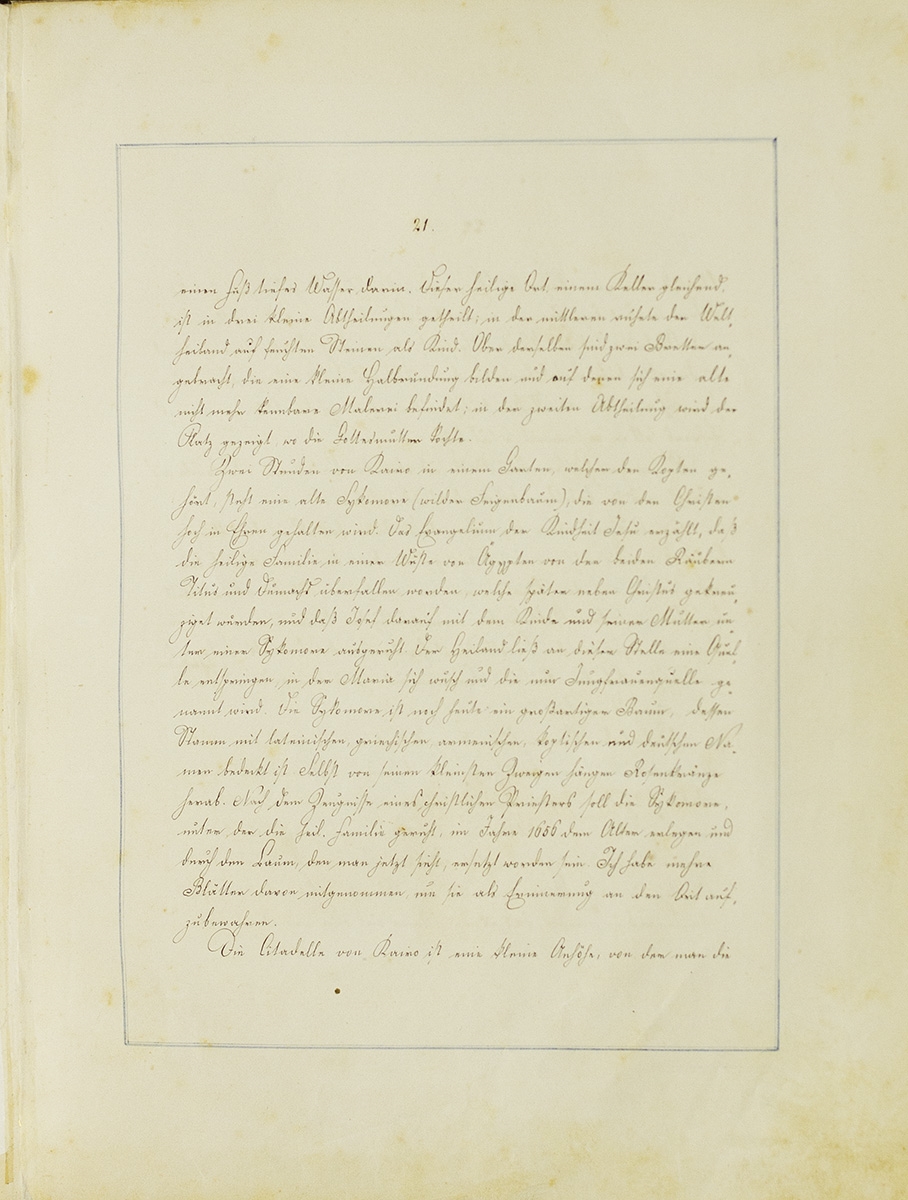 21.
einen Fuß tiefes Wasser darin. Dieser heilige Ort, einem Keller gleichend,
ist in drei kleine Abtheilungen getheilt; in der mittleren ruhete der Welt-
heiland auf feuchten Steinen als Kind. Über derselben sind zwei Bretter an-
gebracht, die eine kleine Halbrundung bilden und auf denen sich eine alte
nicht mehr kennbare Malerei befindet; in der zweiten Abtheilung wird der
Platz gezeigt, wo die Gottesmutter kochte.
Zwei Stunden von Kairo in einem Garten, welcher den Kopten ge-
hört, steht eine alte Sykomore (wilder Feigenbaum), die von den Christen
hoch in Ehren gehalten wird. Das Evangelium der Kindheit Jesu erzählt, daß
die heilige Familie in einer Wüste von Ägypten von den beiden Räubern
Titus und Dumachs überfallen worden, welche später neben Christus gekreu-
ziget wurden, und daß Josef darauf mit dem Kinde und seiner Mutter un-
ter einer Sykomore ausgeruht. Der Heiland ließ an dieser Stelle eine Quel-
le entspringen, in der Maria sich wusch und die nun Jungfrauenquelle ge-
nannt wird. Die Sykomore ist noch heute ein großartiger Baum, dessen
Stamm mit lateinischen, griechischen, armenischen, koptischen und deutschen Na-
men bedeckt ist. Selbst von seinen kleinsten Zweigen hängen Rosenkränze
herab. Nach dem Zeugnisse eines christlichen Priesters soll die Sykomore,
unter der die heil. Familie geruht, im Jahre 1656 dem Alter erlegen und
durch den Baum, den man jetzt sieht, ersetzt worden sein. Ich habe mehre
Blätter davon mitgenommen, um sie als Erinnerung an den Ort auf-
zubewahren.
Die Citadelle von Kairo ist eine kleine Anhöhe, von der man die